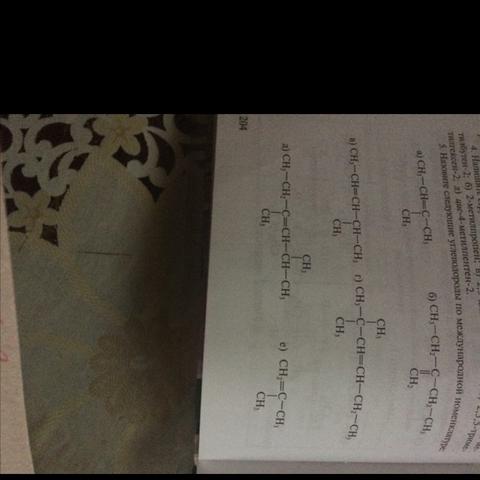 4. Напишите
тилбутен-2; б) 2-метилпропен; в)
тилгексен-2; д) цис-4-метилпентен-2.
5. Назовите следующие углеводороды по международной номенклатуре
а) CH₃—CH=C—CH₃
CH₃
б) CH₃—CH₂—C—CH₂—CH₃
CH₂
в) CH₃—CH=CH—CH—CH₃
CH₃
CH₃
г) CH₃—C—CH=CH—CH₂—CH₃
CH₃
CH₃
д) CH₃—CH₂—C=CH—CH—CH₃
CH₃
е) CH₂=C—CH₃
CH₃
204